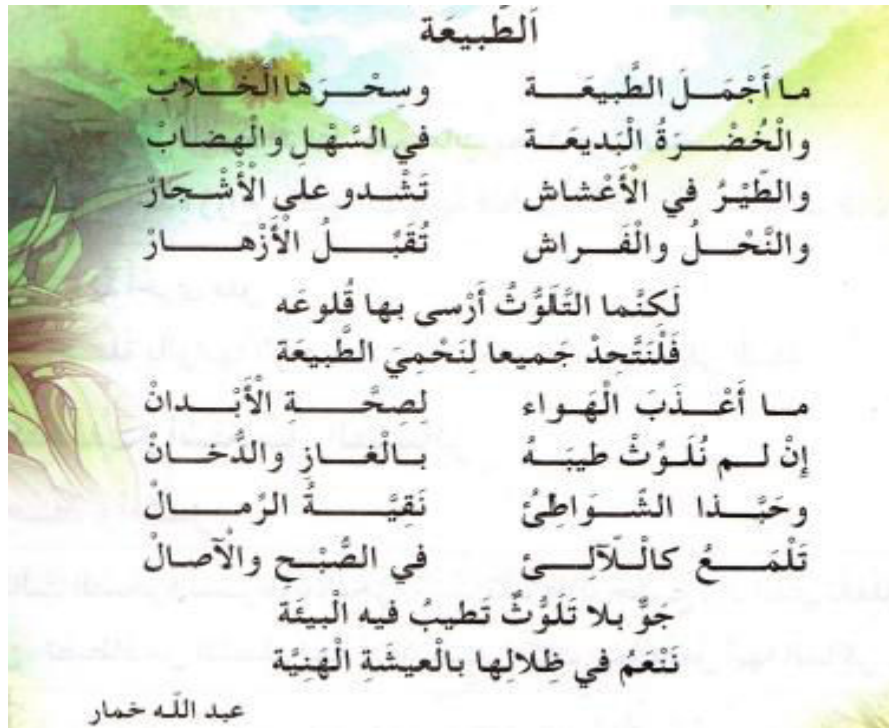 اَلطَّبيعَة
ما أَجْمَـلَ الطَّبيعَـــة وسِحْـــرَها الْخَـلاَّبْ
والْخُضْـــرَةُ الْبَديعَـة في السَّهْـلِ والْهِضَـابْ
والطَّيْـرُ في الْأَعْشاش تَشْـدو على الْأَشْـجارْ
والنَّحْـلُ والْفَـــراش تُقَبِّـــلُ الْأَزْهـــارْ
لَكنَّما التَّلَوُّثُ أَرْسى بها قُلوعَه
فَلْنَتَّحِدْ جميعا لِنَحْمِي الطَّبيعَة
مـا أَعْـذَبَ الْهَـواء لِصِحَّـــةِ الْأَبْـــدانْ
إنْ لـم نُلَـوِّثْ طيبَـهُ بـالْغـازِ والدُّخـانْ
وحَبَّـــذا الشَّـــوَاطِئُ نَقِيَّـــةُ الرِّمـــالْ
تَلْمَـــعُ كالْـلَآلِـــئ في الصُّبْـحِ والْآصالْ
جَوٌّ بلا تَلَوُّثٌ تَطيبُ فيه الْبيئَة
نَنْعَم في ظِلالِها بالْعيشَةِ الْهَنِيَّة
عبد اللّه خمار